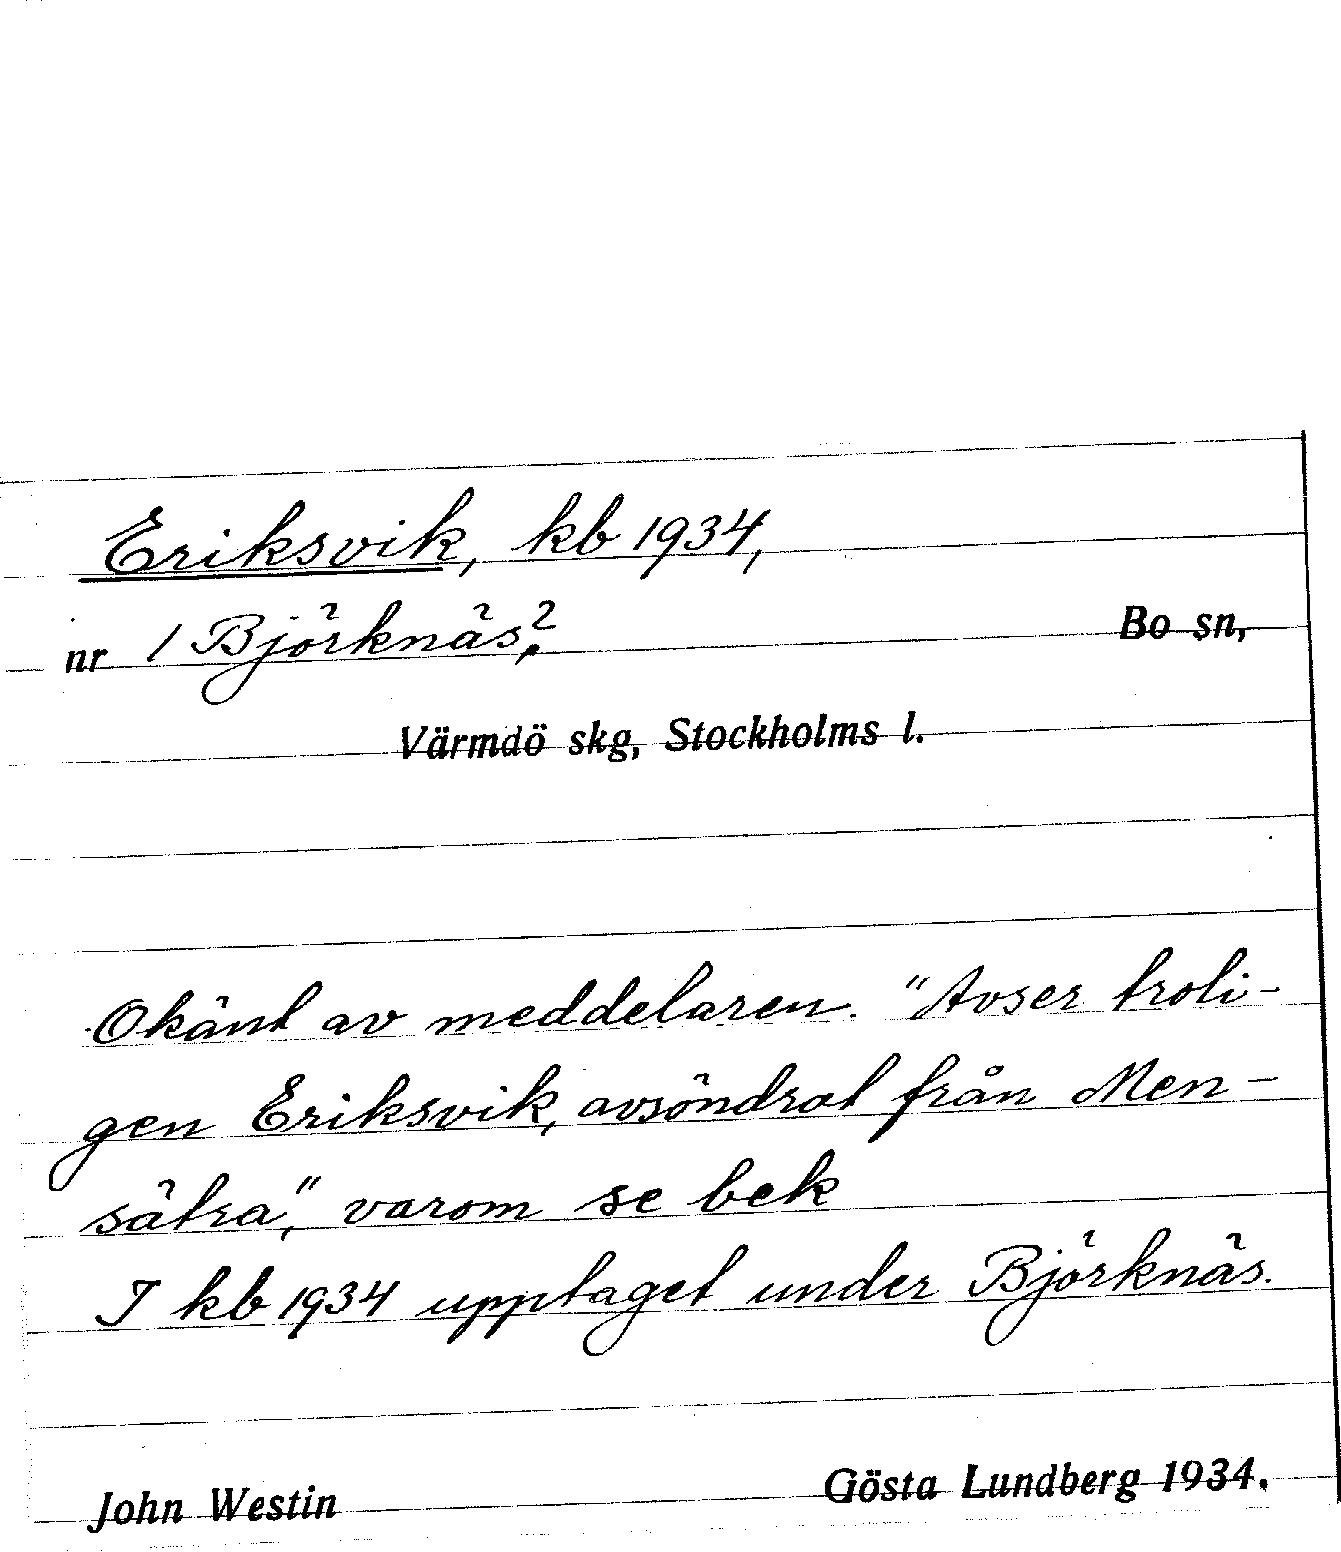 Eriksvik, kb 1934,
nr 1 Björknäs?, Bo sn,
Värmdö skg, Stockholms l.
Okänt av meddelaren. "Avser troli-
gen Eriksvik, avsöndrat från Men-
sätra", varom se bek
I kb 1934 upptaget under Björknäs.
John Westin Gösta Lundberg 1934.